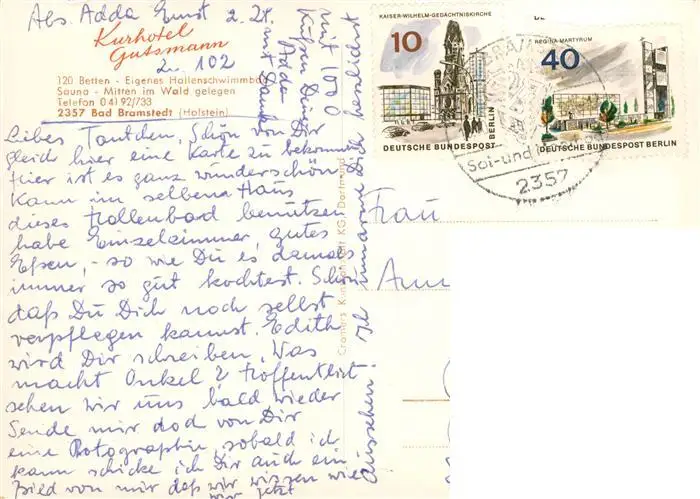 Abs. Adda Ernst z. Zt.
Kurhotel
Gutsmann
Zi. 102
120 Betten - Eigenes Hallenschwimmbad
Sauna - Mitten im Wald gelegen
Telefon 04192/733
2357 Bad Bramstedt (Holstein)
Liebes Tantchen, Schön von Dir
gleich hier eine Karte zu bekommen
Hier ist es ganz wunderschön
Kann im selben Haus
dieses Hallenbad benutzen
habe Einzelzimmer, gutes
Essen, - so wie Du es damals
immer so gut kochtest. Schön
daß Du Dich noch selbst
verpflegen kannst. Edith
wird Dir schreiben. Was
macht Onkel? Hoffentlich
sehen wir uns bald wieder
Sende mir doch von Dir
eine Photographie, sobald ich
kann schicke ich Dir auch ein
Bild von mir daß wir wissen wie
wir jetzt
aussehen. Ich umarme Dich herzlichst
mit Dank
mit 1000
Küßen Deine
Adda
Cramers Kunstanstalt KG, Dortmund
Frau
KAISER-WILHELM-GEDÄCHTNISKIRCHE
10
BERLIN
DEUTSCHE BUNDESPOST
REGINA-MARTYRUM
40
DEUTSCHE BUNDESPOST BERLIN
Sol-und
2357